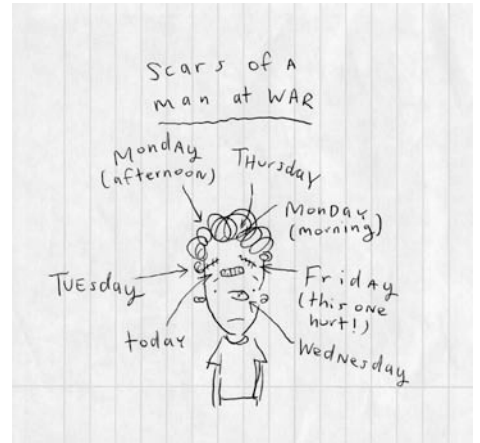 Scars of A
man at WAR
MondAy
(afternoon)
THursday
MonDAy
(morning)
TUEsday
FridAy
(this one
hurt!)
today
WedNesday